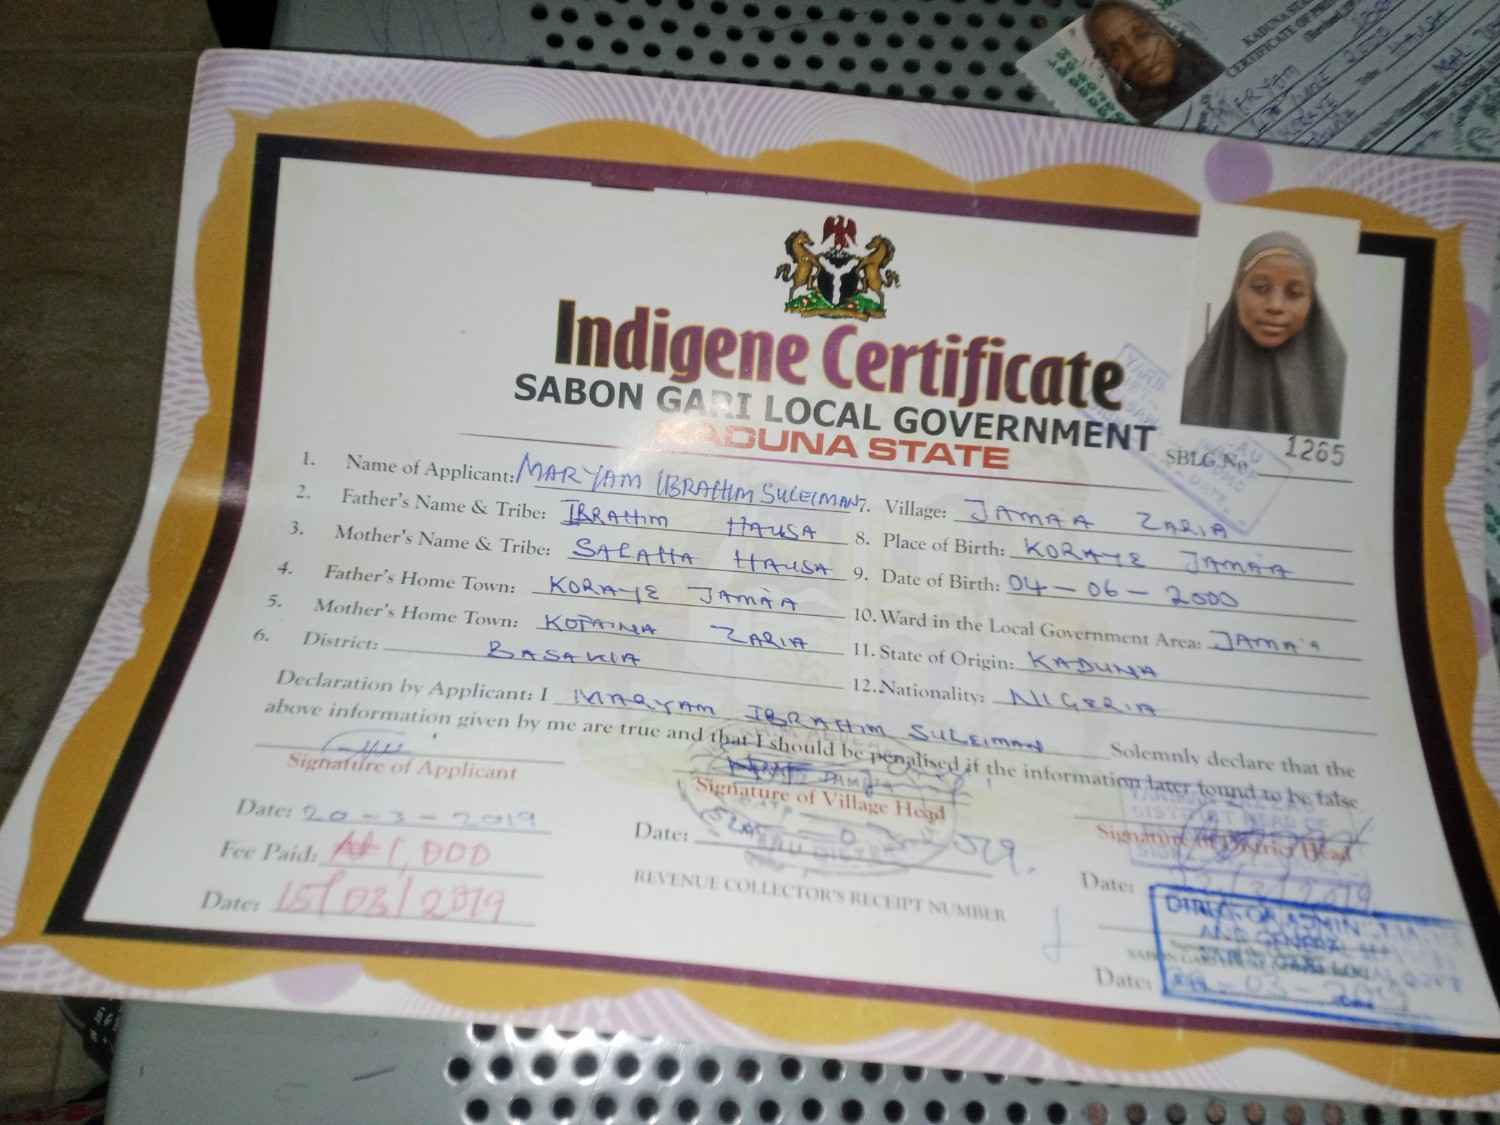 Indigene Certificate
SABON GARI LOCAL GOVERNMENT
KADUNA STATE
SBLG No 1265
1. Name of Applicant: MARYAM IBRAHIM SULEIMAN
2. Father's Name & Tribe: IBRAHIM HAUSA
3. Mother's Name & Tribe: SALAHA HAUSA
4. Father's Home Town: KORAYE JAMA'A
5. Mother's Home Town: ZARIA
6. District: BASAWA
7. Village: JAMA'A ZARIA
8. Place of Birth: KORAYE JAMA'A
9. Date of Birth: 04-06-2000
10. Ward in the Local Government Area: JAMA'A
11. State of Origin: KADUNA
12. Nationality: NIGERIA
Declaration by Applicant: I MARYAM IBRAHIM SULEIMAN Solemnly declare that the
above information given by me are true and that I should be penalised if the information later found to be false
Signature of Applicant
Date: 20-3-2019
Fee Paid: ₦1,000
Date: 15/03/2019
Signature of Village Head
Date:
REVENUE COLLECTOR'S RECEIPT NUMBER
Signature of District Head
Date: 22/3/2019
DIRECTOR ADMIN
AND GENERAL
Date:
CERTIFICATE OF
MARYAM